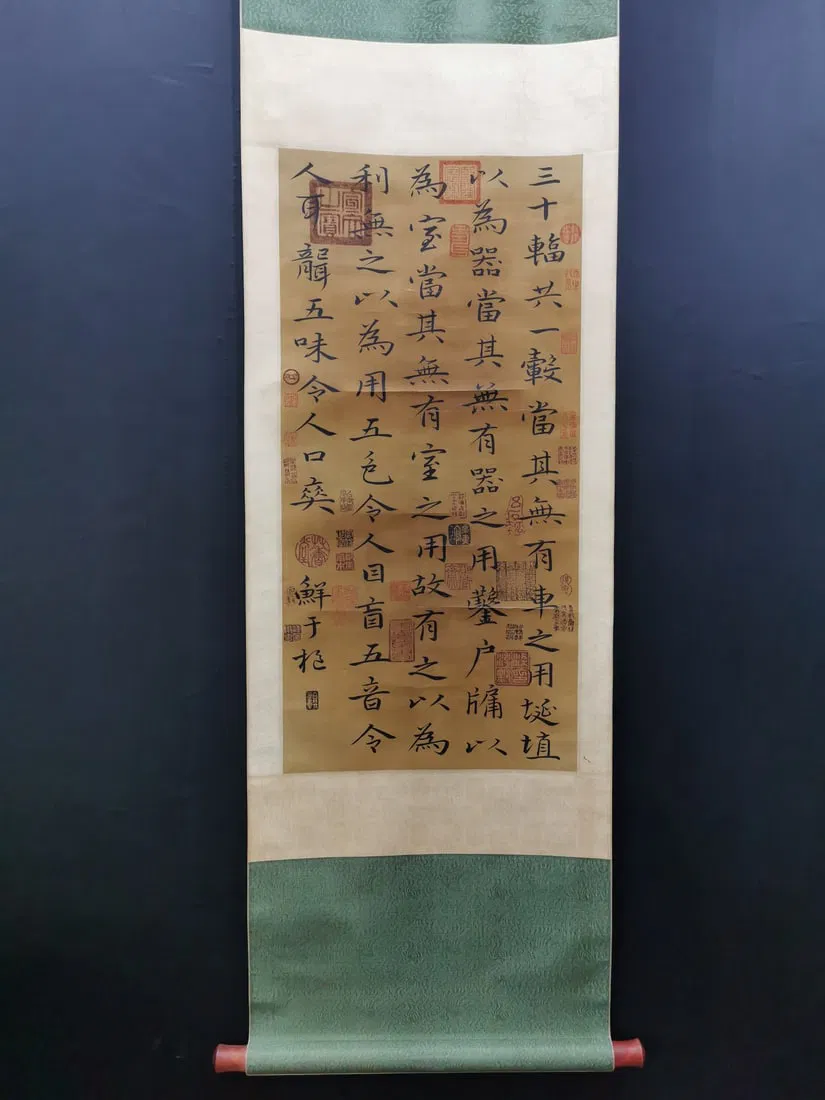 三十輻共一轂當其無有車之用埏埴
以為器當其無有器之用鑿户牖以
為室當其無有室之用故有之以為
利無之以為用五色令人目盲五音令
人耳聾五味令人口爽 鮮于枢